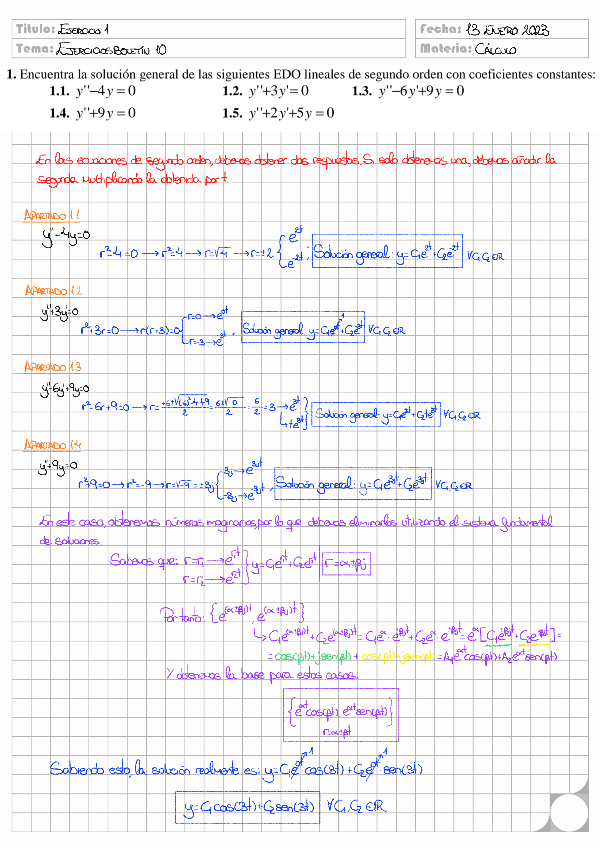 Título: Ejercicio 1
Fecha: 13 Enero 2023
Tema: Ejercicios Boletín 10
Materia: Cálculo
1. Encuentra la solución general de las siguientes EDO lineales de segundo orden con coeficientes constantes:
1.1. y''−4y = 0 1.2. y''+3y' = 0 1.3. y''−6y'+9y = 0
1.4. y''+9y = 0 1.5. y''+2y'+5y = 0
En las ecuaciones de segundo orden, debemos obtener dos respuestas. Si solo obtenemos una, debemos añadir la
segunda multiplicando la obtenida por t
Apartado 1.1
y''-4y=0
r²-4=0 → r²=4 → r=√4 → r=±2 { e^{2t} e^{-2t} ; Solución general: y=C₁e^{2t}+C₂e^{-2t} ∀C₁,C₂∈ℝ
Apartado 1.2
y''+3y'=0
r²+3r=0 → r(r+3)=0 { r=0→e^{0t} r=-3→e^{-3t} , Solución general: y=C₁e^{0t}+C₂e^{-3t} ∀C₁,C₂∈ℝ
Apartado 1.3
y''-6y'+9y=0
r²-6r+9=0 → r= = 6±√0 / 2 = 6/2 = 3 → e^{3t} ↳ te^{3t} } Solución general: y=C₁e^{3t}+C₂te^{3t} ∀C₁,C₂∈ℝ
Apartado 1.4
y''+9y=0
r²+9=0 → r²=-9 → r=√-9 = ±3j { 3j→e^{3jt} -3j→e^{-3jt} , Solución general: y=C₁e^{3jt}+C₂e^{-3jt} ∀C₁,C₂∈ℝ
En este caso, obtenemos números imaginarios, por lo que debemos eliminarlos utilizando el sistema fundamental
de soluciones.
Sabemos que: r=r₁ → e^{r₁t} r=r₂ → e^{r₂t} } y=C₁e^{r₁t}+C₂e^{r₂t} r=α±βj
Por tanto: {e^{(α+βj)t} e^{(α±βj)t}}
↳ C₁e^{(α+βj)t}+C₂e^{(α-βj)t} = C₁e^{α}·e^{βjt}+C₂e^{α}·e^{-βjt} = e^{α}[C₁e^{jβt}+C₂e^{-jβt}] =
= cos(βt)+jsen(βt) + cos(βt)+jsen(βt) = A₁e^{αt}cos(βt)+A₂e^{αt}sen(βt)
Y obtenemos la base para estos casos:
{e^{αt}cos(βt) e^{αt}sen(βt)}
r=α±βt
Sabiendo esto, la solución realmente es: y=C₁e^{0t} cos(3t)+C₂e^{0t} sen(3t)
y=C₁cos(3t)+C₂sen(3t) ∀C₁,C₂∈ℝ